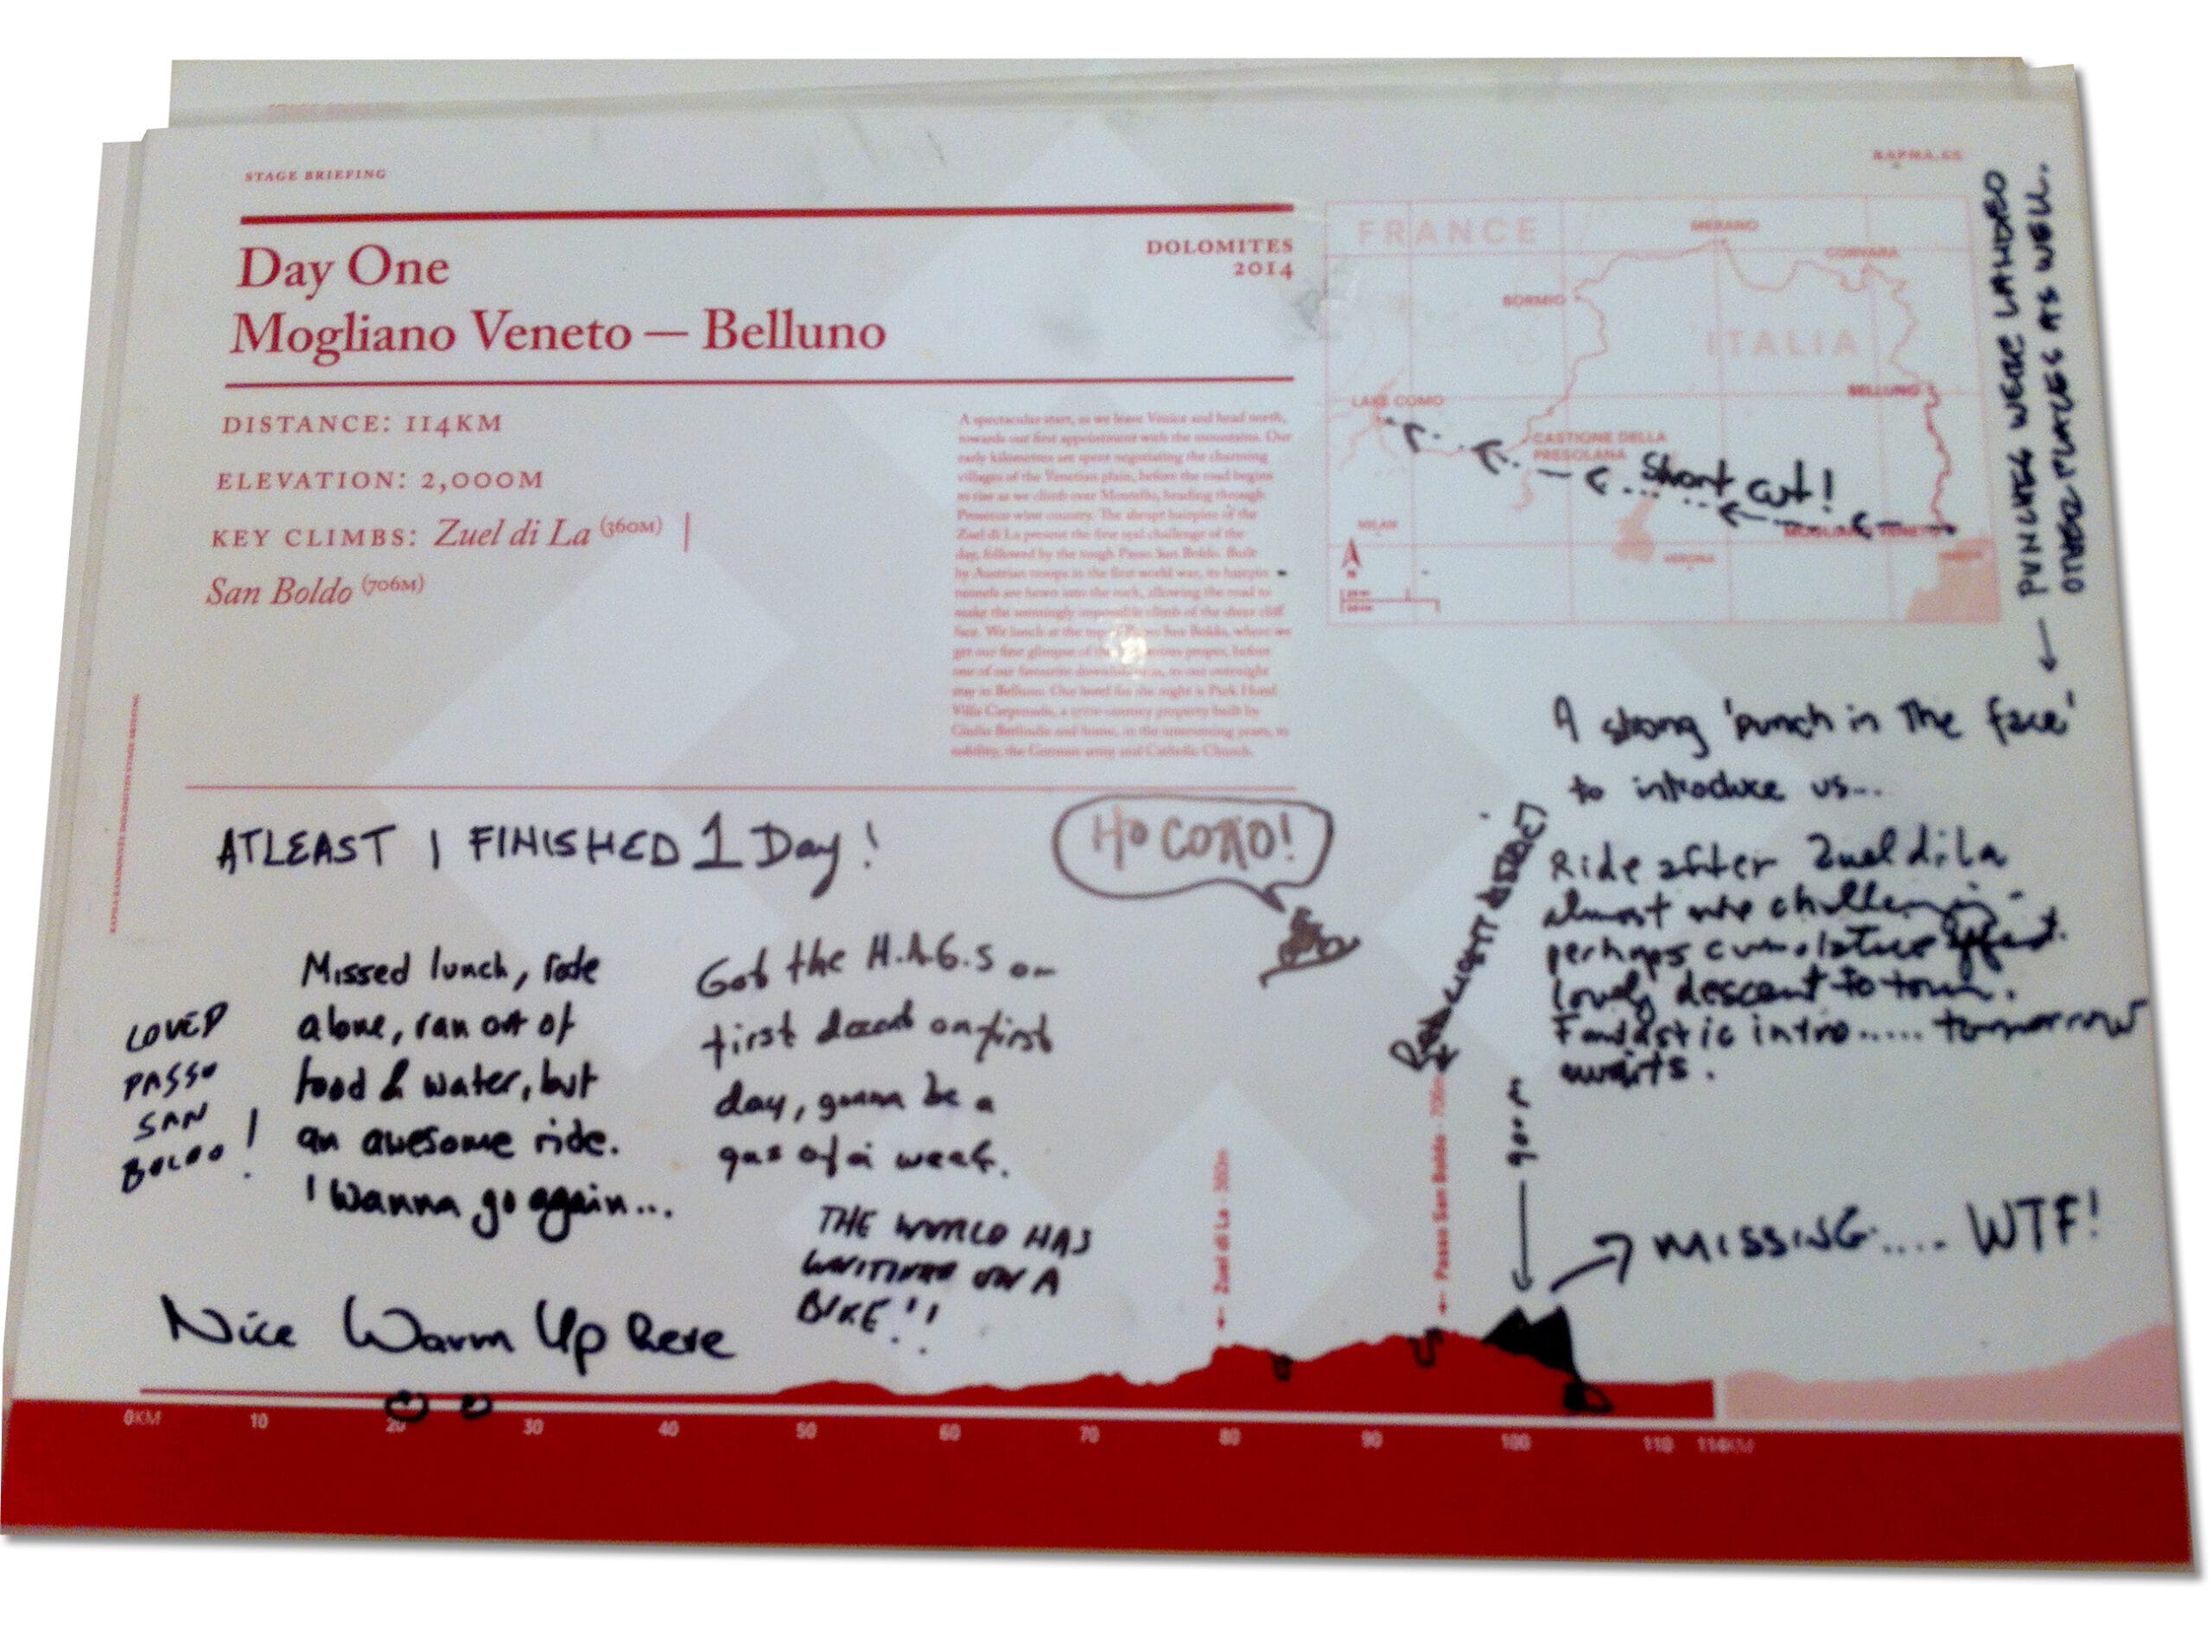 STAGE BRIEFING
RAPHA.CC
Day One
Mogliano Veneto — Belluno
DOLOMITES
2014
DISTANCE: 114KM
ELEVATION: 2,000M
KEY CLIMBS: Zuel di La (360M) |
San Boldo (706M)
A spectacular start, as we leave Venice and head north,
towards our first appointment with the mountains. Our
early kilometres are spent negotiating the charming
villages of the Venetian plain, before the road begins
to rise as we climb over Montello, heading through
Prosecco wine country. The abrupt hairpins of the
Zuel di La present the first real challenge of the
day, followed by the tough Passo San Boldo. Built
by Austrian troops in the first world war, its hairpin
tunnels are hewn into the rock, allowing the road to
make the seemingly impossible climb of the sheer cliff
face. We lunch at the top of Passo San Boldo, where we
get our first glimpse of the proper, before
one of our favourite to our overnight
stay in Belluno. Our hotel for the night is Park Hotel
Villa Carpenada, a century property built by
Giulio and home, in the intervening years, to
nobility, the German army and Catholic Church.
FRANCE
MERANO
CORVARA
BORMIO
ITALIA
BELLUNO
LAKE COMO
CASTIONE DELLA
PRESOLANA
Short cut!
MILAN
MOGLIANO VENETO
VERONA
N
PUNCHES WERE LANDED
OTHER PLACES AS WELL.
A strong 'punch in The face'
to introduce us...
Ride after Zuel di La
almost more challenging -
perhaps cumulative effect.
lovely descent to town.
Fantastic intro...... tomorrow
awaits.
ATLEAST I FINISHED 1 Day!
HO COMO!
LOVED
PASSO
SAN
BOLDO!
Missed lunch, rode
alone, ran out of
food & water, but
an awesome ride.
I wanna go again...
Got the H.A.G.S on
first descent on first
day, gunna be a
gas of a week.
THE WORLD HAS
ON A
BIKE!!
Nice Warm Up here
← Zuel di La - 360m
← Passo San Boldo - 706m
900 m
MISSING.... WTF!
0KM 10 20 30 40 50 60 70 80 90 100 110 114KM